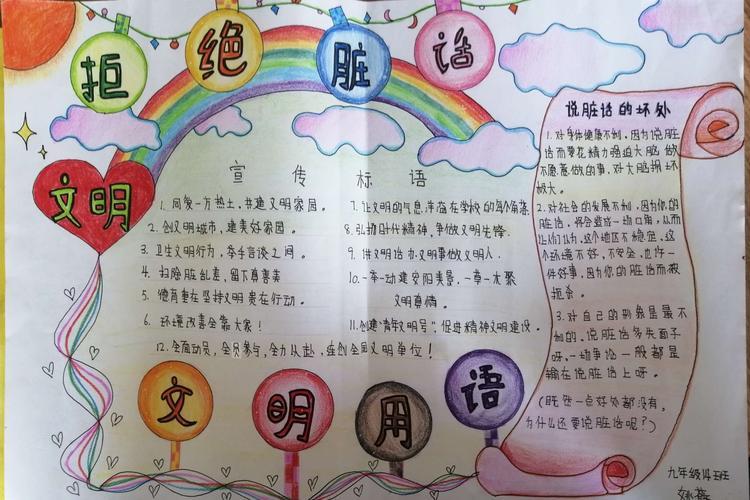 拒绝脏话
文明
宣传标语
1. 同爱一方热土,共建文明家园。
2. 创文明城市,建美好家园。
3. 卫生文明行为,举手言谈之间。
4. 扫除脏乱差,留下真善美
5. 德育重在坚持文明贵在行动。
6. 环境改善全靠大家!
7. 让文明的气息洋溢在学校的每个角落
8. 弘扬时代精神,争做文明先锋.
9. 讲文明话 办文明事做文明人.
10. 一举一动建安阳美景,一草一木聚
文明真情。
11. 创建"青年文明号",促进精神文明建设。
12. 全面动员,全员参与,全力从赴,连创全国文明单位!
文明用语
说脏话的坏处
1. 对身体健康不利,因为说脏
话而要花精力强迫大脑做
不愿意做的事,对大脑损坏
极大。
2. 对社会的发展不利,因为你的
脏话,将会造成一场口角,从而
让人们认为,这个地区不稳定,这
个环境不好,不安全,也许一
件好事,因为你的脏话而被
扼杀。
3. 对自己的形象是最不
利的,说脏话多失面子
呀,一场争论一般都是
输在说脏话上呀。
(既然一点好处都没有,
为什么还要说脏话呢?)
九年级14班